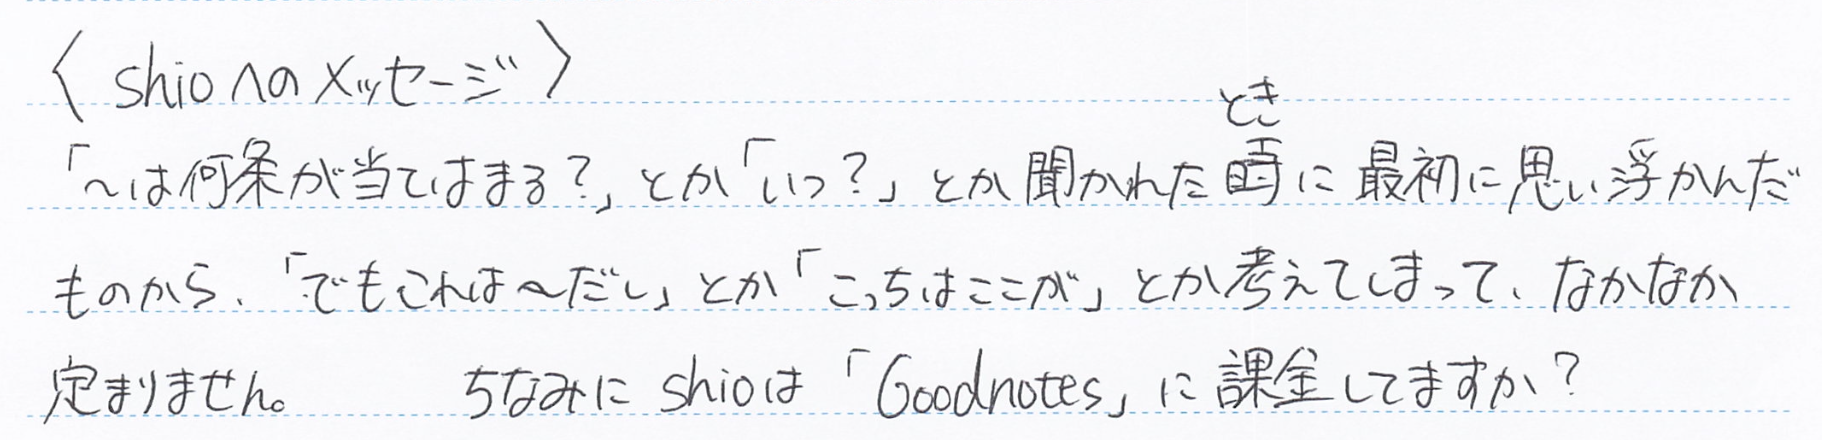 〈 shioへのメッセージ 〉
「〜は何条が当てはまる？」とか「いつ？」とか聞かれた時に最初に思い浮かんだ
とき
ものから、「でもこれは〜だし」とか「こっちはここが」とか考えてしまって、なかなか
定まりません。 ちなみに shioは「Goodnotes」に課金してますか？